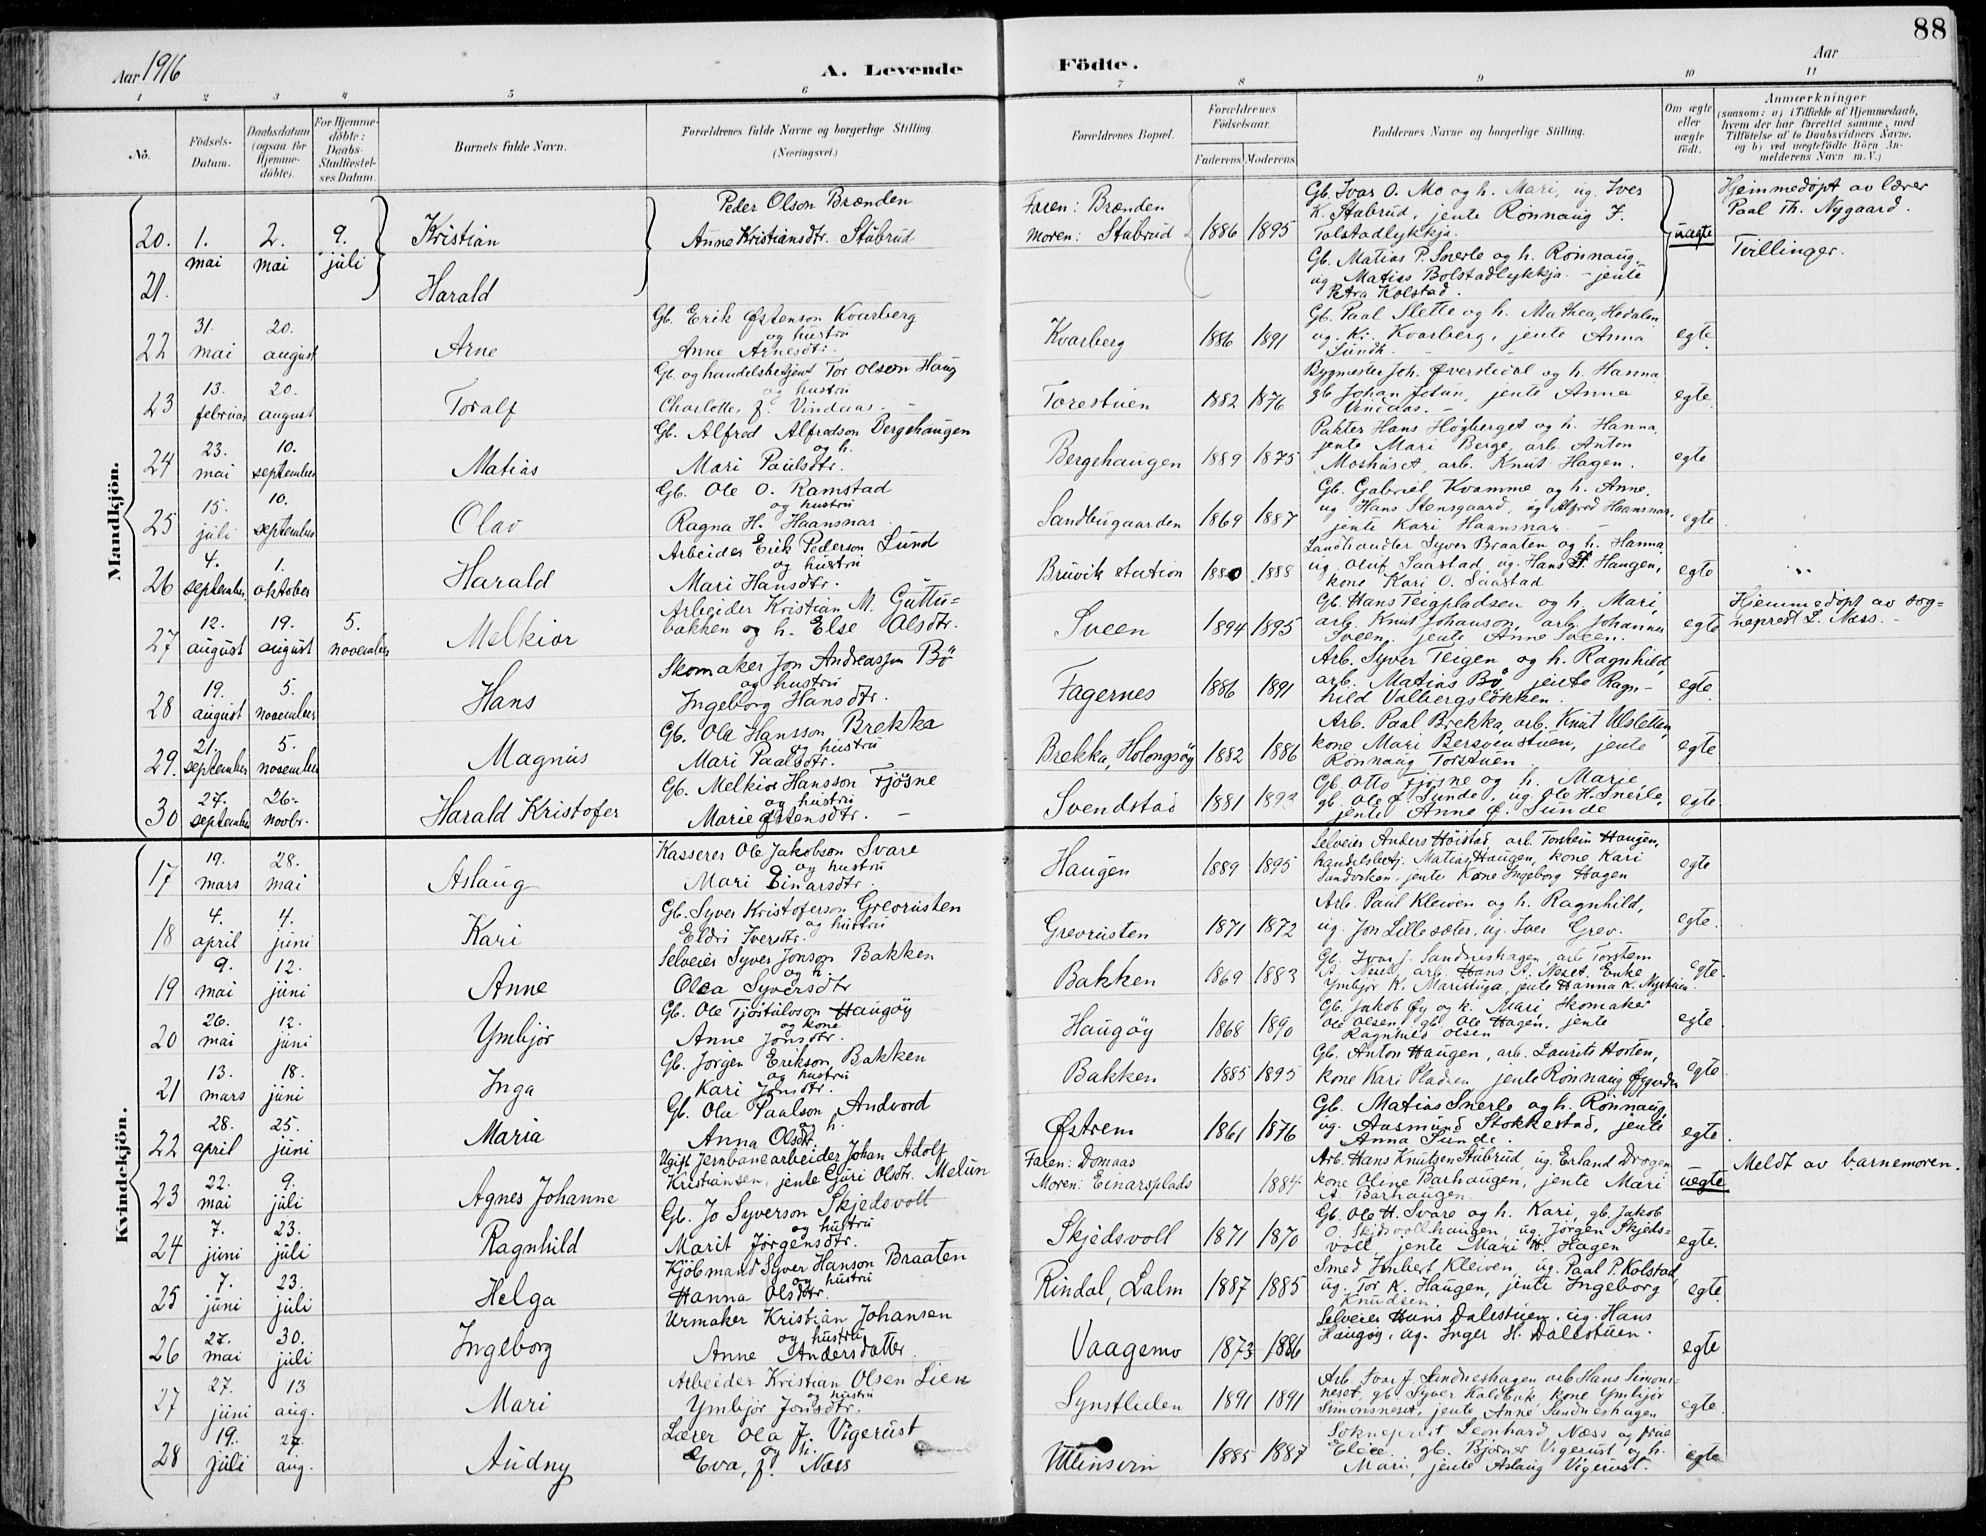 88
Aar 1916
A. Levende Födte.
Aar
1 2 3 4 5 6 7 8 9 10 11
No.
Födsels-Datum.
Daabsdatum (ogsaa for Hjemmedöbte).
For Hjemmedöbte: Daabs-Stadfæstelses Datum.
Barnets fulde Navn.
Forældrenes fulde Navne og borgerlige Stilling (Næringsvei.)
Forældrenes Bopæl.
Forældrenes Födselsaar.
Faderens Moderens
Faddernes Navne og borgerlige Stilling.
Om ægte eller uægte födt.
Anmærkninger (saasom: a) i Tilfælde af Hjemmedaab, hvem der har forrettet samme, med Tilföielse af to Daabsvidners Navne, og b) ved uægtefödte Börn Anmelderens Navn m. V.)
Mandkjön.
20. 1. mai 2. mai 9. juli Kristian
Peder Olson Brænden
Anne Kristiansdtr. Stubrud
Faren: Brænden
Moren: Stubrud
1886 1895
Gb. Ivar O. Mo og h. Mari, ug. Iver
K. Stubrud, jente Rønnaug I.
Tolstadlykkja.
Gb. Matias P. Snerle og h. Rønnaug,
ug. Matias Bolstadlykkja - jente
Petra Kolstad.
uægte
Hjemmedøpt av lærer
Paal Th. Nygaard.
Tvillinger.
21. Harald
22 31. mai 20. august Arne
Gb. Erik Østenson Kvarberg
og hustru
Anne Arnesdtr.
Kvarberg 1886 1891
Gb. Paal Slette og h. Mathea, Hedalen
ug. Kr. Kvarberg, jente Anna
Sundh.
egte.
23 13. februar 20. august Toralf
Gb. og handelsbetjent Tor Olson Haug
og hustru
Charlotte, f. Vindaas.
Torestuen 1882 1876
Bygmester Joh. Øverstdal og h. Hanna
gb. Johan Jotun, jente Anna
Vindaas.
egte.
24 23. mai 10. september Matias
Gb. Alfred Alfredson Bergehaugen
og h.
Mari Paulsdtr.
Bergehaugen 1889 1875
Pakter Hans Høgberget og h. Hanna,
jente Mari Berge, arb. Anton
Moshuset, arb. Knut Hagen.
egte
25 15. juli 10. september Olav
Gb. Ole O. Ramstad
og hustru
Ragna H. Haansnar
Sandbugaarden 1869 1887
Gb. Gabriel Kvamme og h. Anne,
ug. Hans Stensgaard, ug. Alfred Haansnar,
jente Kari Haansnar.
egte
26 4. september 1. oktober Harald
Arbeider Erik Pederson Lund
og hustru
Mari Hansdtr.
Bruvik station 1880 1888
Landhandler Syver Braaten og h. Hanna,
ug. Oluf Saastad, ug. Hans F. Haugen,
kone Kari O. Saastad
egte
27 12. august 19. august 5. november Melkior
Arbeider Kristian M. Guttu-
bakken og h. Else Olsdtr.
Sveen 1894 1895
Gb. Hans Teigpladsen og h. Mari,
arb. Knut Johanson, arb. Johannes
Sveen, jente Anne Sveen.
egte
Hjemmedøpt av sog-
neprest L. Næss.
28 19. august 5. november Hans
Skomaker Jon Andreasson Bø
og hustru
Ingeborg Hansdtr.
Fagernes 1886 1891
Arb. Syver Teigen og h. Ragnhild,
arb. Matias Bø, jente Ragn-
hild Valbergsløkken.
egte.
29. 21. september 5. november Magnus
Gb. Ole Hansson Brekka
og hustru
Mari Paalsdtr.
Brekka, Holongsøy 1882 1886
Arb. Paal Brekka, arb. Knut Ulsletten,
kone Mari Bersvenstuen, jente
Rønnaug Torstuen
egte
30 27. september 26. novbr. Harald Kristofer
Gb. Melkior Hansson Fjøsne
og hustru
Marie Østensdtr.
Svendstad 1881 1893
Gb. Otto Fjøsne og h. Marie,
gb. Ole J. Sunde, ug. Ole H. Snerle,
jente Anne J. Sunde
egte
Kvindekjön.
17 19. mars 28. mai Aslaug
Kasserer Ole Jakobson Svare
og hustru
Mari Einarsdtr.
Haugen 1889 1895
Selveier Anders Høistad, arb. Torstein Haugen,
handelsbetj. Matias Haugen, kone Kari
Sandviken, jente Kone Ingeborg Hagen
egte
18 4. april 4. juni Kari
Gb. Syver Kristoferson Grevrusten
og hustru
Eldri Iversdtr.
Grevrusten 1871 1872
Arb. Paul Kleiven og h. Ragnhild,
ug. Jon Lillesæter, ug. Iver Grev.
egte.
19 9. mai 12. juni Anne
Selveier Syver Jonson Bakken
og h.
Olea Syversdtr
Bakken 1869 1883
Gb. Ivar J. Sandneshagen, arb Torstein
A. Neset, arb. Hans A. Neset. Enke
Ymbjør K. Maristuga, jente Hanna K. Nystuen.
egte.
20 26. mai 12. juni Ymbjør
Gb. Ole Tjøstulvson Haugøy
og kone
Anne Jonsdtr.
Haugøy 1868 1890
Gb. Jakob Øy og k. Mari, Skomaker
Ole Olsen, gb. Ole Hagen, jente
Ragnhild Olsen
egte
21 13. mars 18. juni Inga
Gb. Jørgen Erikson Bakken
og hustru
Kari Jonsdtr.
Bakken 1885 1895
Gb. Anton Haugen, arb. Laurits Horten,
kone Kari Pladsen jente Rønnaug Øygarden
egte
22 28. april 25. juni Maria
Gb. Ole Paalson Andvord
og h.
Anna Olsdtr.
Østrem 1861 1876
Gb. Matias Snerle og h. Rønnaug,
ug. Aasmund Stokkestad, jente
Anna Sunde.
egte.
23 22. mai 9. juli Agnes Johanne
Ugift jernbanearbeider Johan Adolf
Kristiansen, jente Guri Olsdtr. Melum
Faren: Domaas
Moren: Einarsplads
1884
Arb. Hans Knutsen Stubrud, ug. Erland Drogen
kone Oline Barhaugen, jente Mari
A. Barhaugen.
uegte
Meldt av barnemoren.
24 7. juni 23. juli Ragnhild
Gb. Jo Syverson Skjedsvoll
og hustru
Marit Jørgensdtr.
Skjedsvoll 1871 1870
Gb. Ole H. Svare og h. Kari, gb. Jakob
O. Skjedsvollhaugen, ug. Jørgen Skjeds-
voll jente Mari H. Hagen
egte.
25 7. juni 23. juli Helga
Kjøbmand Syver Hanson Braaten
og hustru
Hanna Olsdtr.
Rindal, Lalm 1887 1885
Smed Imbert Kleiven, ug. Paal P. Kolstad
ug. Tor K. Haugen, jente Ingeborg
Knudsen.
egte.
26 27. mai 30. juli Ingeborg
Urmaker Kristian Johansen
og hustru
Anne Andersdatter
Vaagemo 1873 1886
Selveier Hans Dalestuen, ug. Hans
Haugøy, ug. Inger H. Dalestuen.
egte
27 27. juni 13 aug. Mari
Arbeider Kristian Olsen Lien
og hustru
Ymbjør Jonsdtr.
Synstlien 1891 1891
Arb. Ivar J. Sandneshagen arb Hans Simons-
neset, gb Syver Kaldbak, kone Ymbjør
Simonsneset, jente Anne Sandneshagen
egte.
28 19. juli 27. aug. Audny
Lærer Ola J. Vigerust
og h.
Eva, f. Næss
Ullinsvin 1885 1887
Sokneprest Leonhard Næss og frue
Elise, gb. Bjørner Vigerust og h.
Mari, jente Aslaug Vigerust.
egte